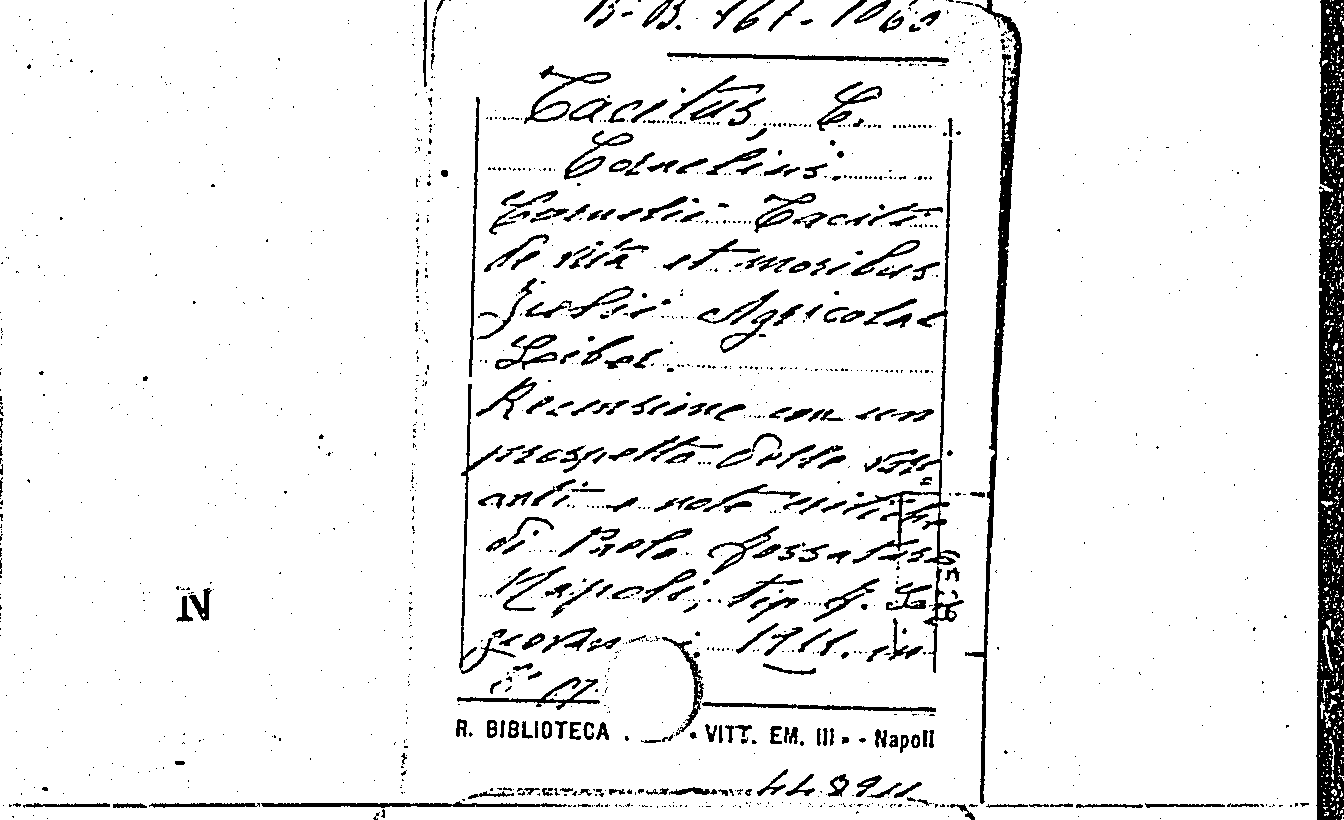 Tacitus, C.
Cornelius.
Cornelii Taciti
de vita et moribus
Julii Agricolae
Liber.
Recensione con un
prospetto delle vari
anti e note critiche
di Paolo Fossataro
Napoli, tip. F. San
giovanni. 1911. in
8°
R. BIBLIOTECA VITT. EM. III - Napoli
N